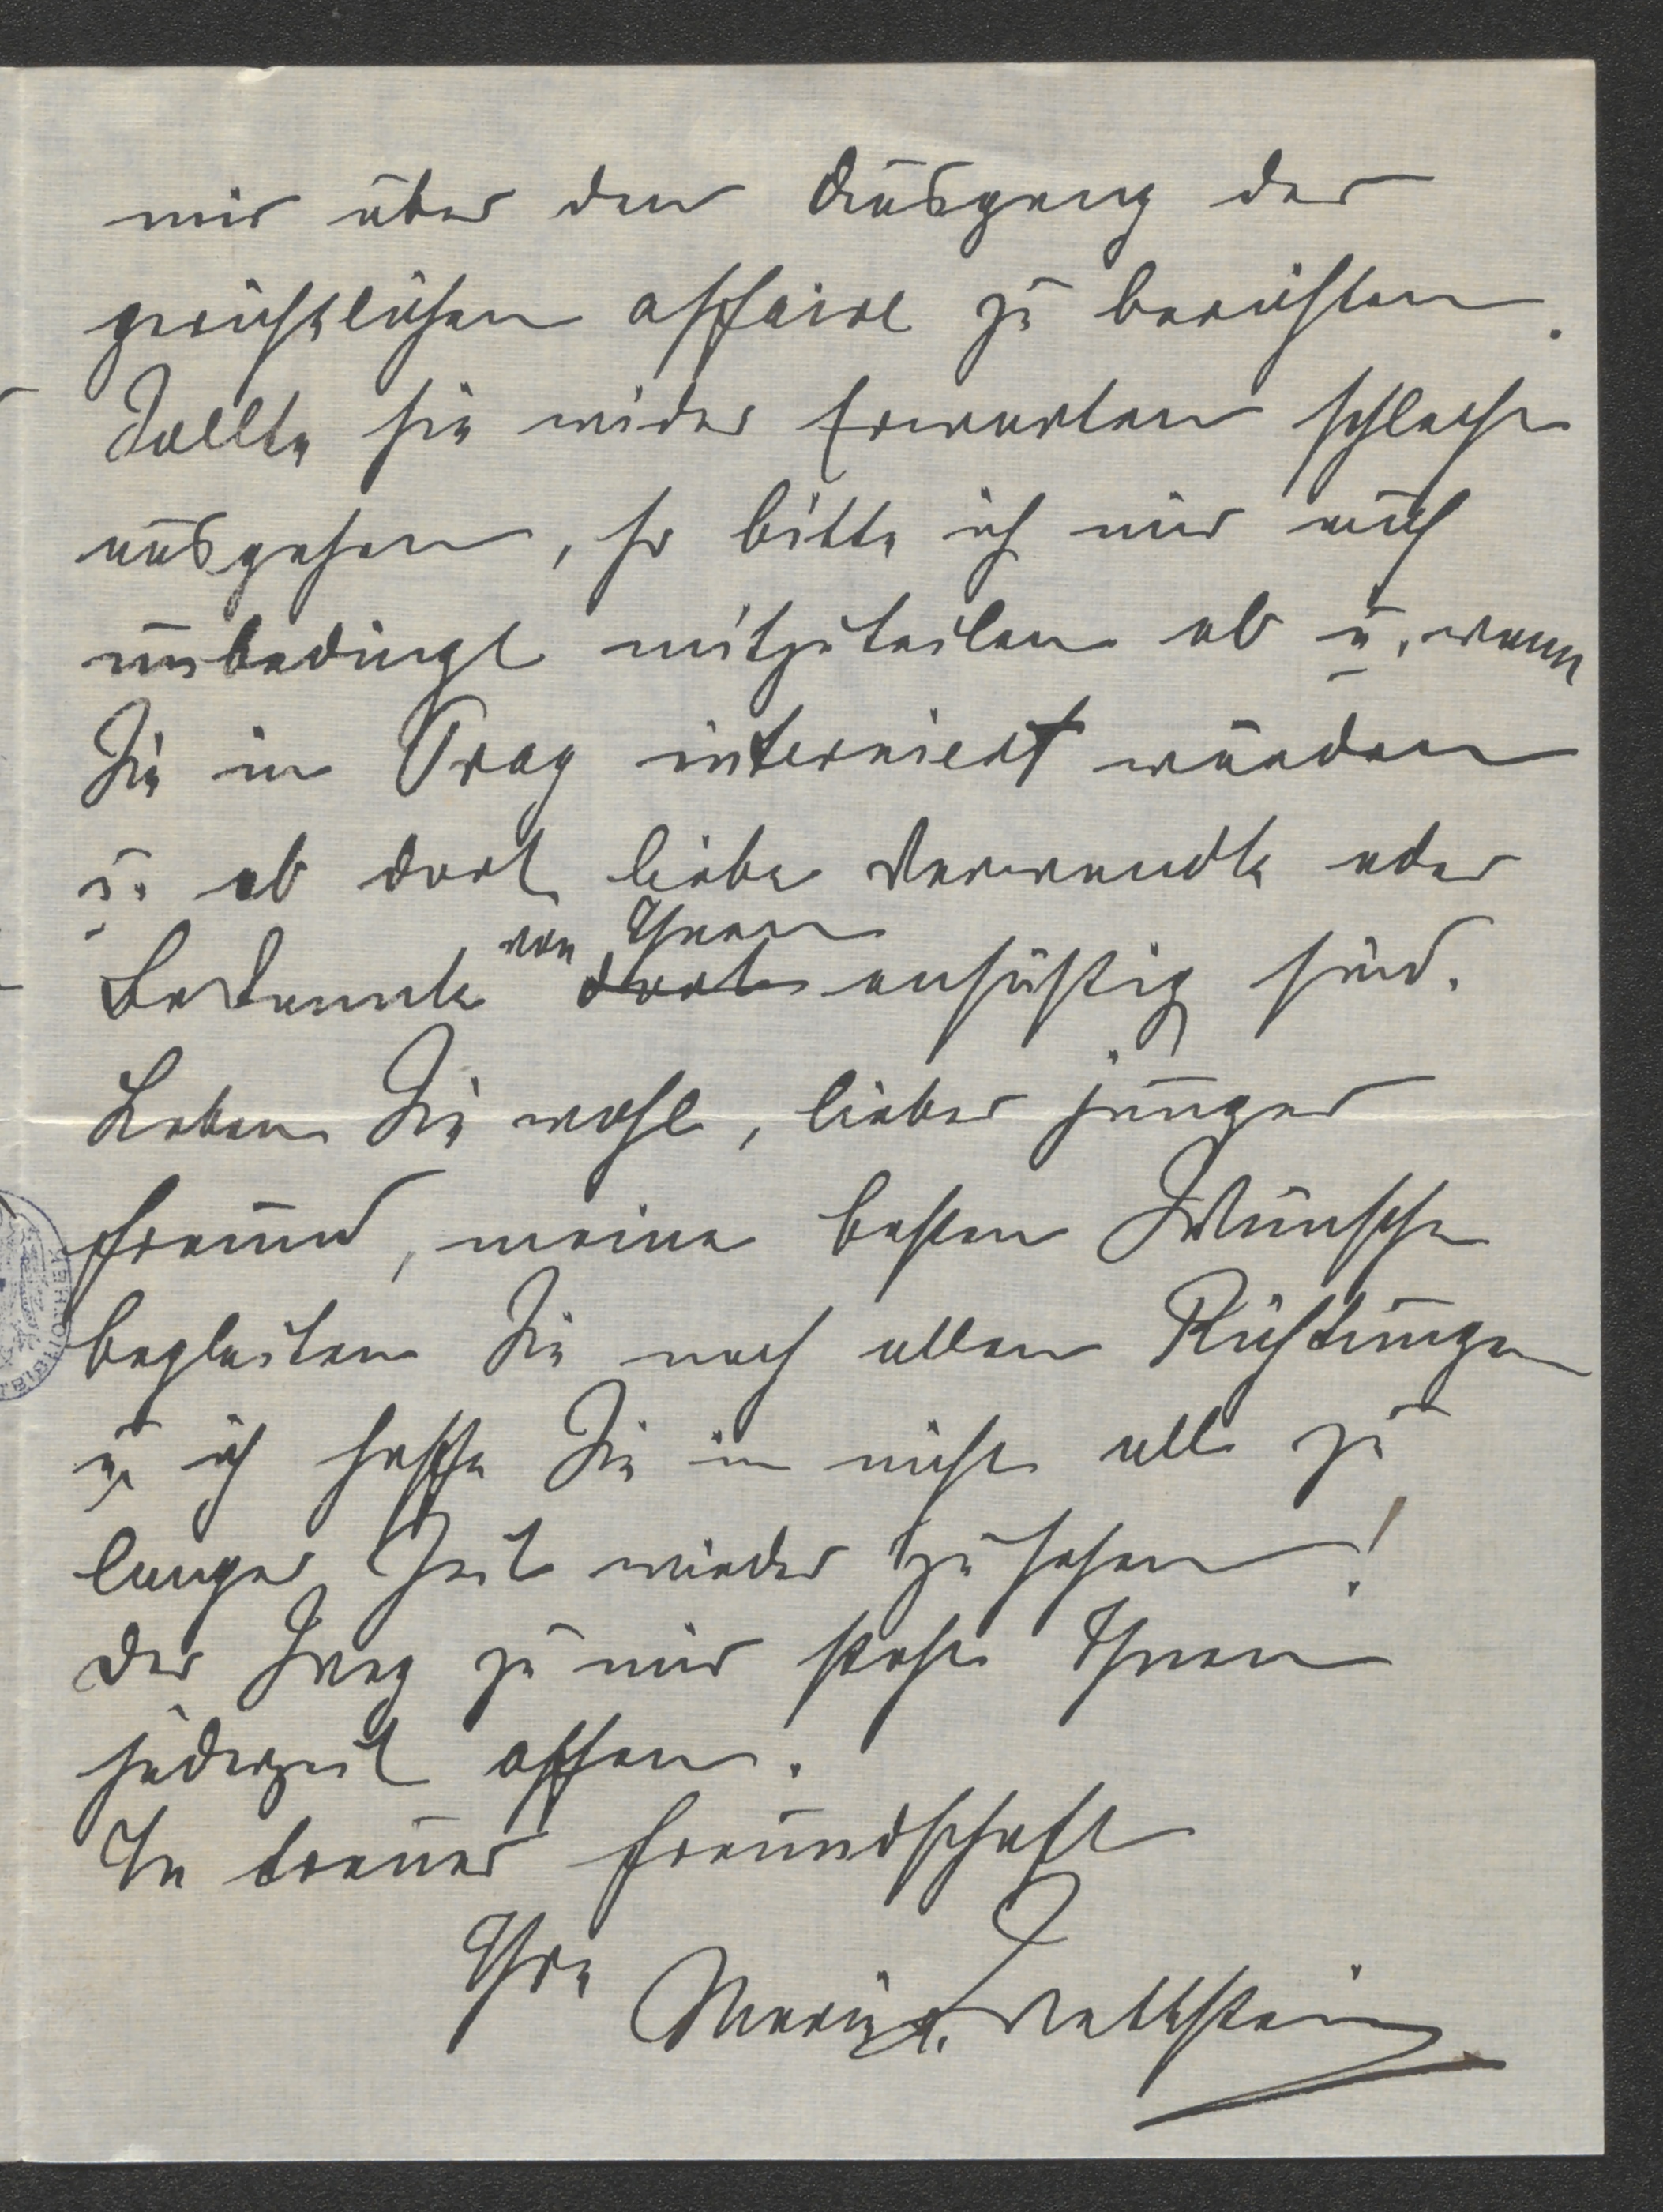 mir über den Ausgang der
gerichtlichen Affaire zu berichten.
Sollte sie wider Erwarten schlecht
ausgehen, so bitte ich mir auch
unbedingt mitzuteilen ob u. wann
Sie in Prag interniert würden
u. ob dort liebe Verwandte oder
Bekannte von Ihnen dort ansässig sind.
Leben Sie wohl, lieber junger
Freund, meine besten Wünsche
begleiten Sie nach allen Richtungen
u. ich hoffe Sie in nicht all zu
langer Zeit wieder zu sehen!
Der Weg zu mir steht Ihnen
jederzeit offen.
In treuer Freundschaft
Ihre